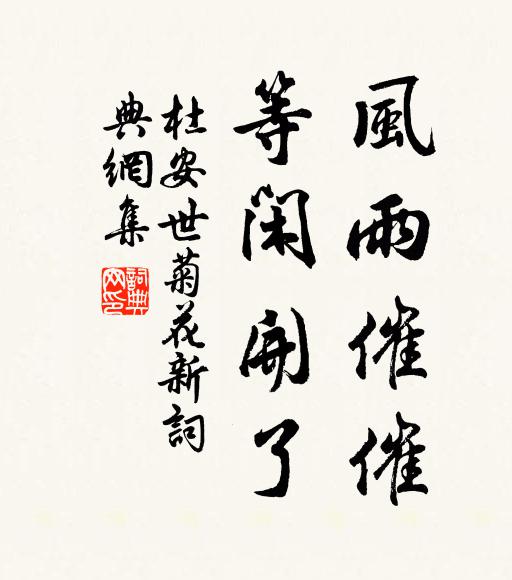 風雨催催
等閑開了
杜安世菊花新詞
典網集
詞典
网印